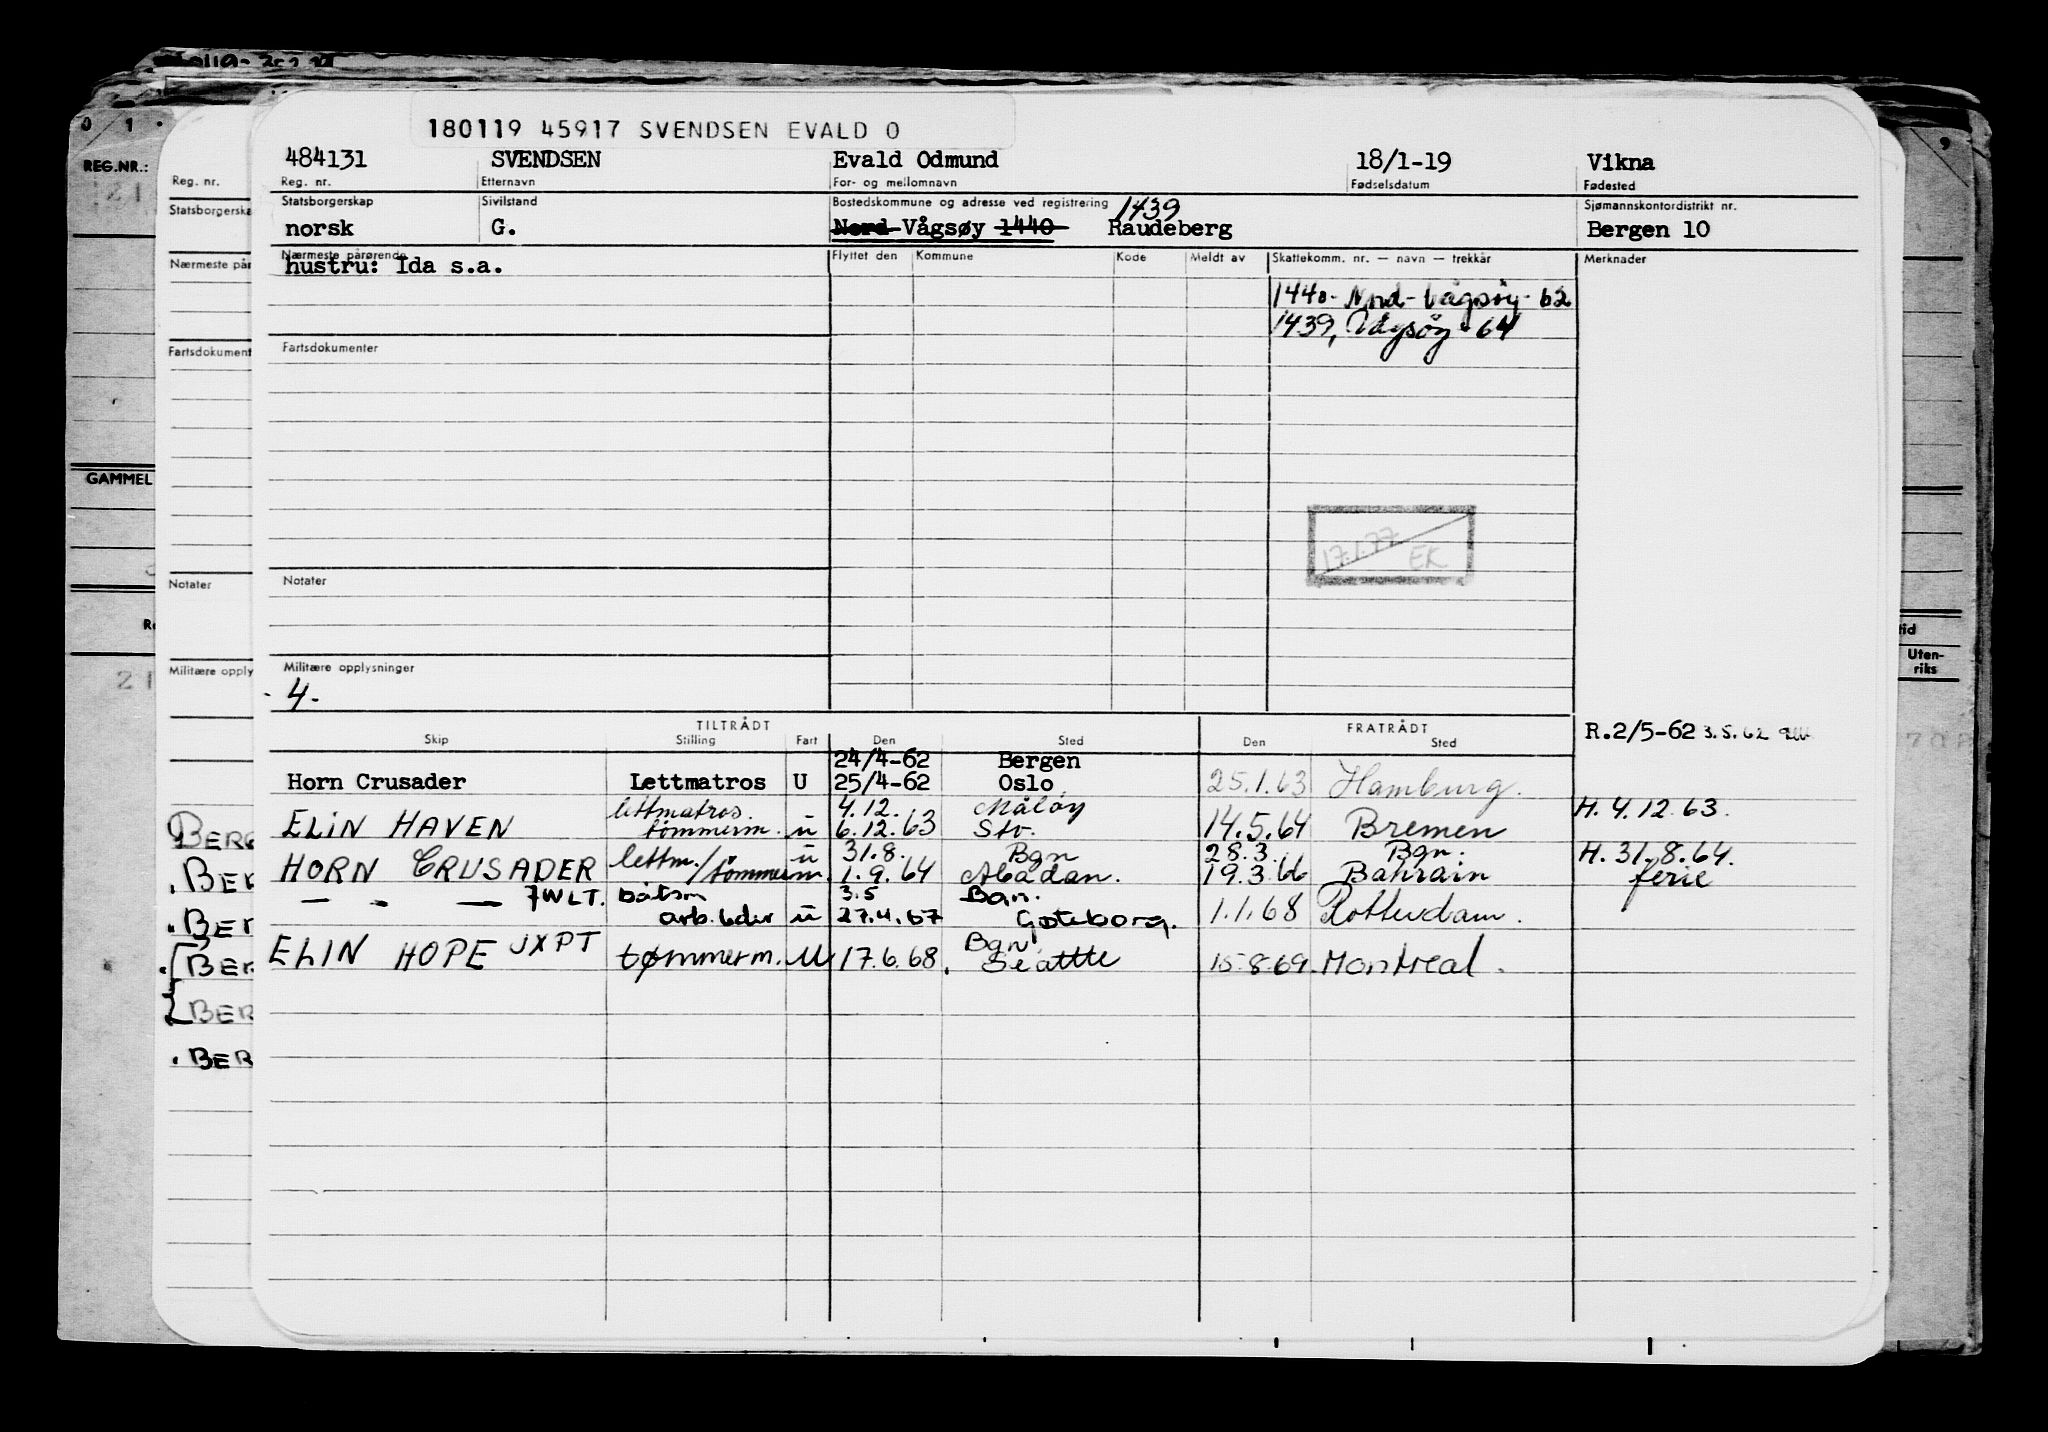 180119 45917 SVENDSEN EVALD O
484131 SVENDSEN Evald Odmund 18/1-19 Vikna
Reg. nr. Etternavn For- og mellomnavn Fødselsdatum Fødested
Statsborgerskap Sivilstand Bostedskommune og adresse ved registrering 1439 Sjømannskontordistrikt nr.
norsk G. Nord-Vågsøy 1440 Raudeberg Bergen 10
Nærmeste pårørende Flyttet den Kommune Kode Meldt av Skattekomm. nr. — navn — trekkår Merknader
hustru: Ida s.a.
1440- Nord-Vågsøy- 62
1439, Vågsøy - 64
Fartsdokumenter
17.1.77 EK
Notater
Militære opplysninger
4.
TILTRÅDT FRATRÅDT
Skip Stilling Fart Den Sted Den Sted
R.2/5-62 3.5.62
24/4-62 Bergen
Horn Crusader Lettmatros U 25/4-62 Oslo 25.1.63 Hamburg.
lettmatros. 4.12. Måløy H. 4.12.63.
ELIN HAVEN tømmerm. u 6.12.63 Stv. 14.5.64 Bremen
lettm./ u 31.8. Bgn 28.3. Bgn. H. 31.8.64.
HORN CRUSADER tømmerm. 1.9.64 Abadan. 19.3.66 Bahrain ferie
— - — 7WLT. båtsm 3.5 Bgn.
arb.leder u 27.4.67 Gøteborg. 1.1.68 Rotterdam.
ELIN HOPE JXPT tømmerm. U 17.6.68. Bgn. Seattle 15.8.69. Montreal.
0 1
REG.NR.:
21
GAMMEL
21
Reg. nr.
Nærmeste pår
Fartsdokument
Notater
Militære opply
BERG
BER
BER
BER
BER
BER
9
tid
Uten-
riks